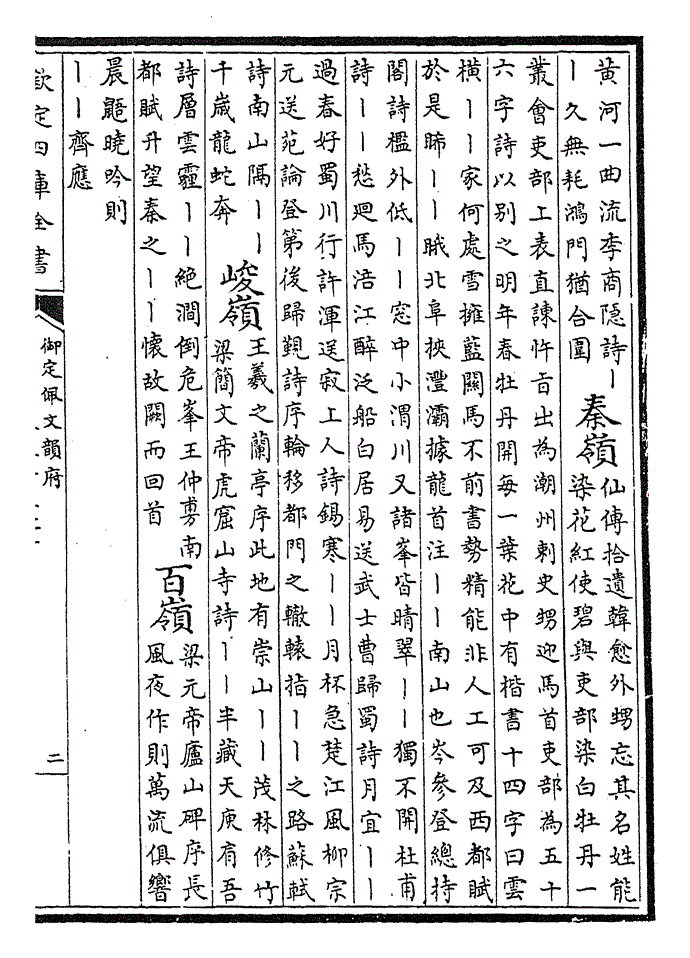 黄河一曲流李商隠詩丨
丨久無耗鴻門猶合圍
秦嶺
仙傳拾遺韓愈外甥忘其名姓能
染花紅使碧與吏部染白牡丹一
叢會吏部上表直諫忤旨出為潮州刺史甥迎馬首吏部為五十
六字詩以别之明年春牡丹開每一葉花中有楷書十四字曰雲
横丨丨家何處雪擁藍關馬不前書勢精能非人工可及西都賦
於是睎丨丨睋北阜挾灃灞據龍首注丨丨南山也岑參登總持
閣詩檻外低丨丨窓中小渭川又諸峯皆晴翠丨丨獨不開杜甫
詩丨丨愁迴馬涪江醉泛船白居易送武士曹歸蜀詩月宜丨丨
過春好蜀川行許渾送寂上人詩錫寒丨丨月杯急楚江風柳宗
元送苑論登第後歸覲詩序輪移都門之轍轅指丨丨之路蘇軾
詩南山隔丨丨
千歳龍蛇奔
峻嶺
王羲之蘭亭序此地有崇山丨丨茂林修竹
梁簡文帝虎窟山寺詩丨丨半藏天庾肩吾
詩層雲霾丨丨絶澗倒危峯王仲旉南
都賦升望秦之丨丨懷故闕而回首
百嶺
梁元帝廬山碑序長
風夜作則萬流俱響
晨鼯曉吟則
丨丨齊應
欽定四庫全書
御定佩文韻府
二